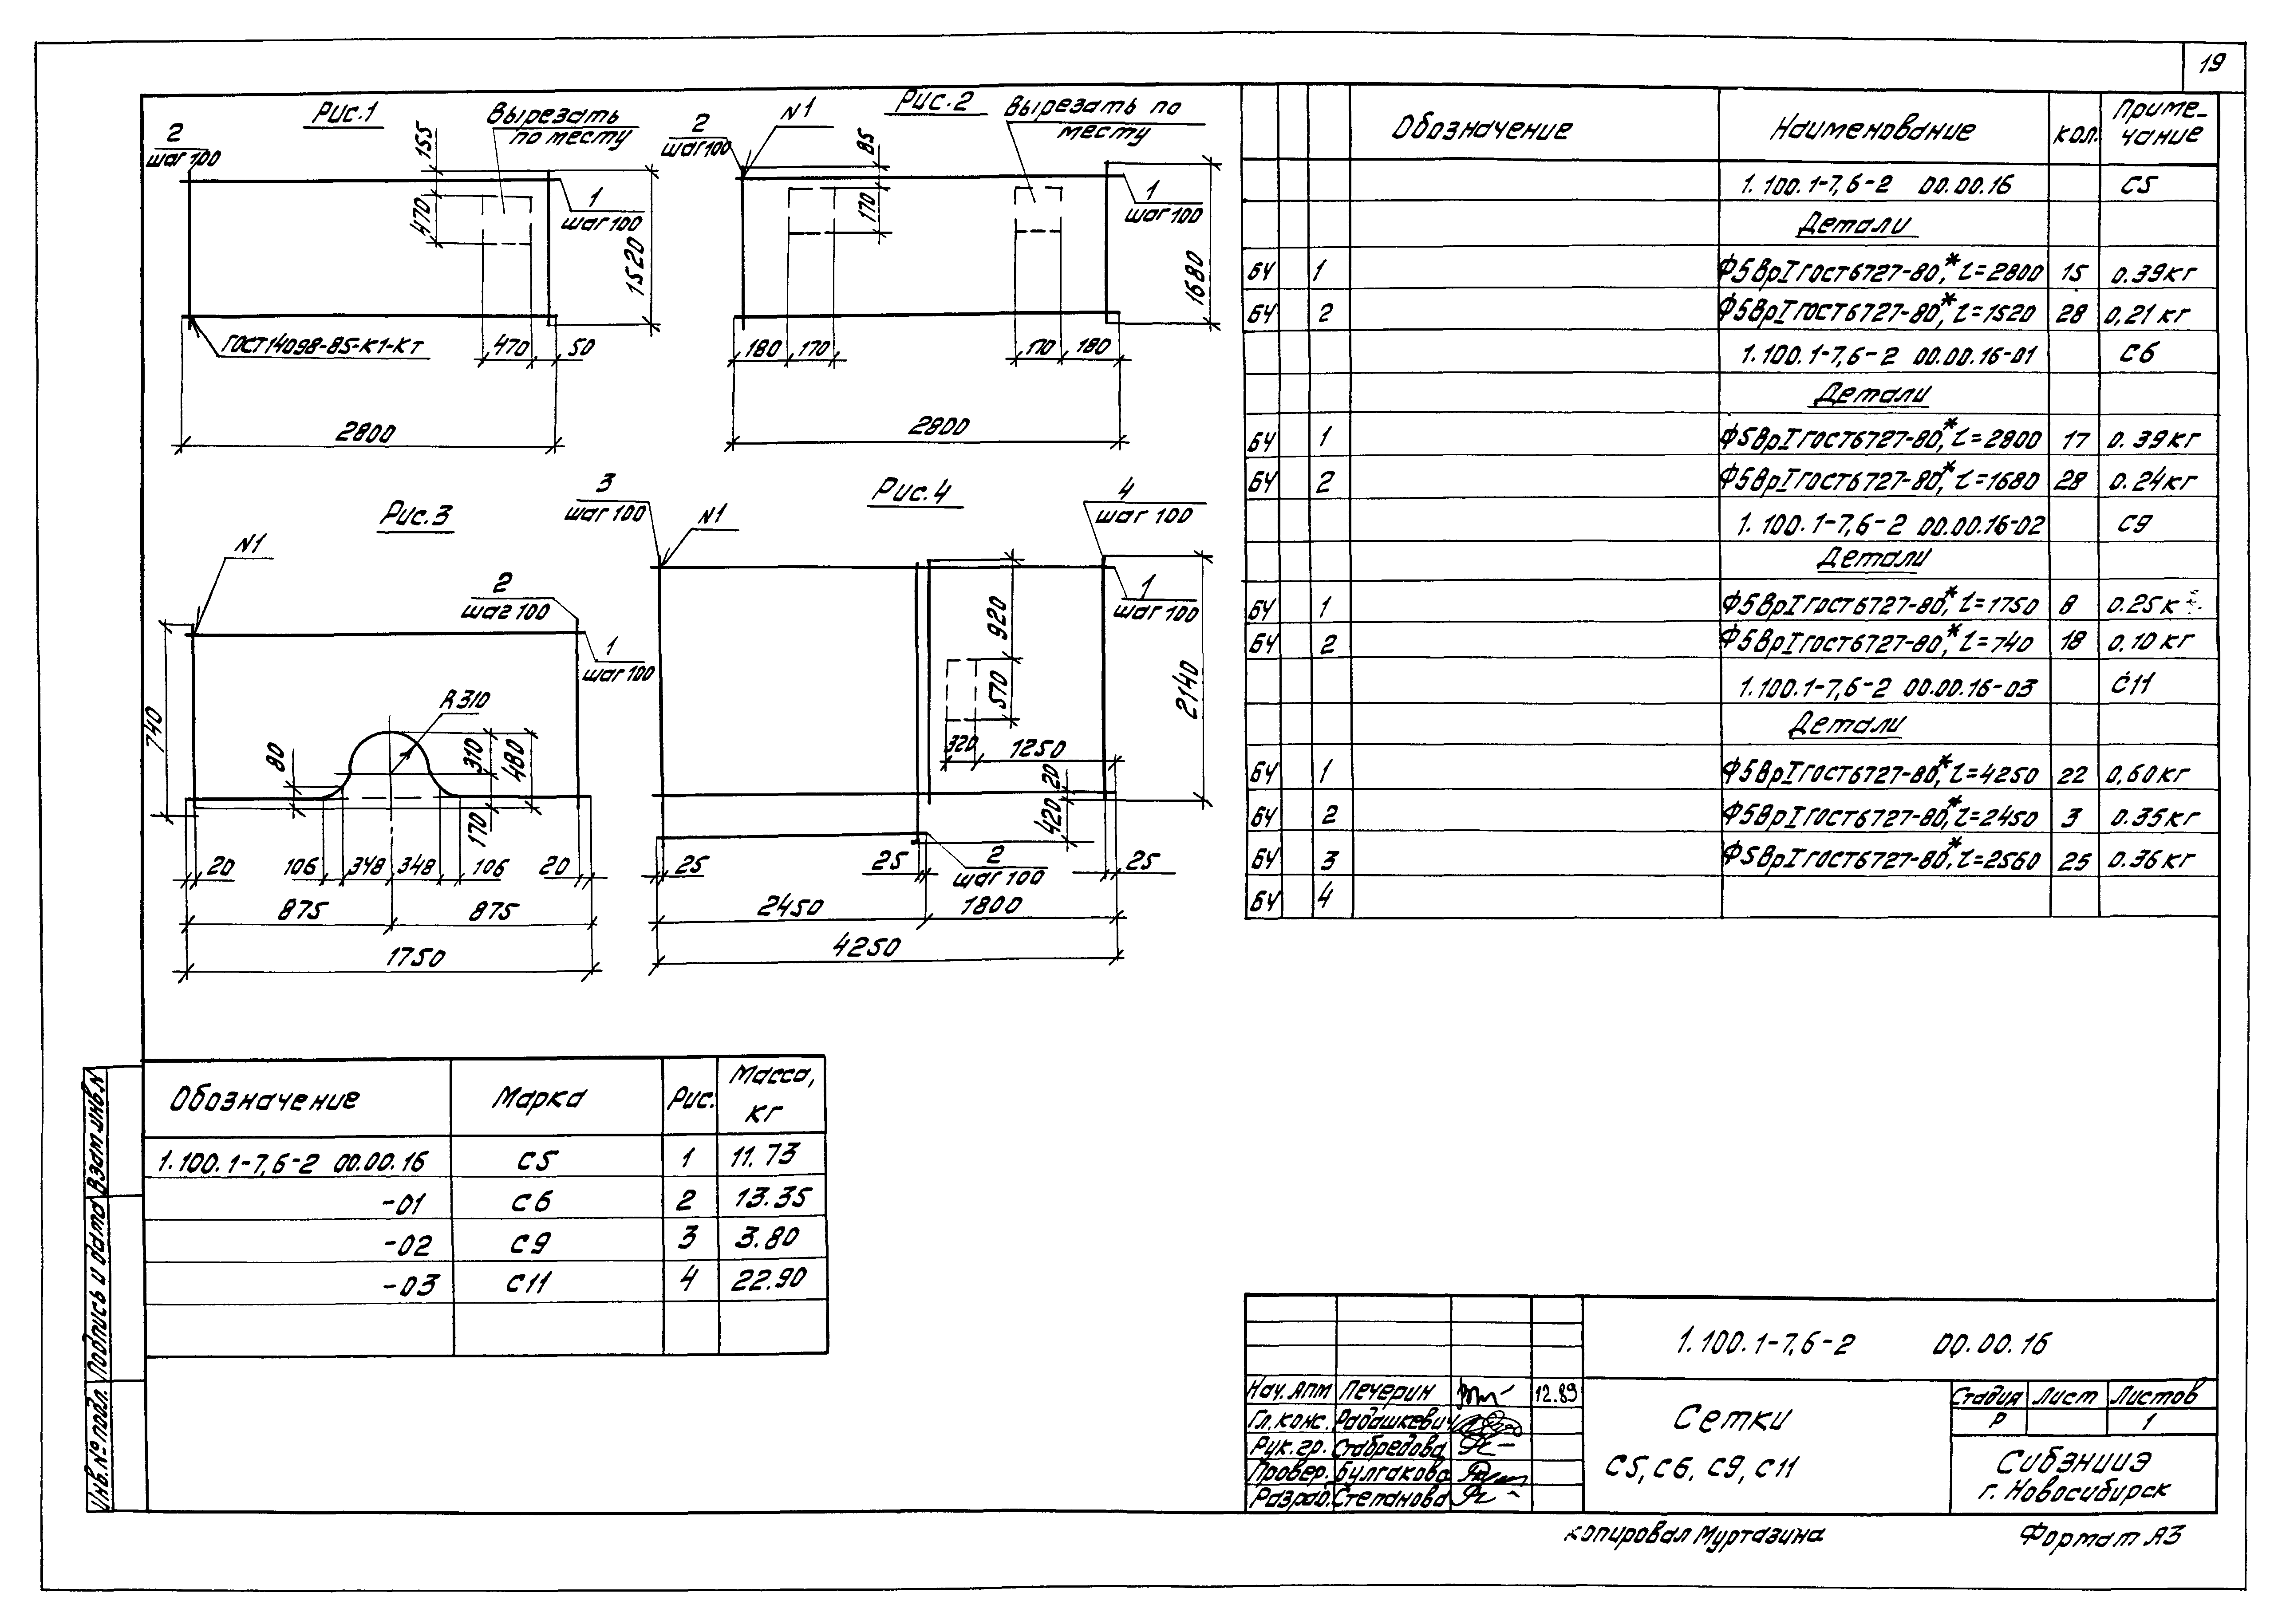 19
Рис.1
Вырезать
по месту
2
шаг 100
155
470
1
шаг 100
1520
ГОСТ14098-85-К1-Кт
470
50
2800
Рис.2
Вырезать по
месту
2
шаг 100
N1
85
170
1
шаг 100
1680
180
170
170
180
2800
Рис.3
N1
2
шаг 100
1
шаг 100
740
R310
80
310
480
170
20
106
348
348
106
20
875
875
1750
Рис.4
3
шаг 100
N1
4
шаг 100
1
шаг 100
920
570
2140
320
1250
20
420
25
25
2
шаг 100
25
2450
1800
4250
Обозначение Наименование Кол. Приме-
чание
1.100.1-7,6-2 00.00.16 С5
Детали
БЧ 1 Ф5ВрI ГОСТ6727-80*, l=2800 15 0.39кг
БЧ 2 Ф5ВрI ГОСТ6727-80*, l=1520 28 0,21кг
1.100.1-7,6-2 00.00.16-01 С6
Детали
БЧ 1 Ф5ВрI ГОСТ6727-80*, l=2800 17 0.39кг
БЧ 2 Ф5ВрI ГОСТ6727-80*, l=1680 28 0.24кг
1.100.1-7,6-2 00.00.16-02 С9
Детали
БЧ 1 Ф5ВрI ГОСТ6727-80*, l=1750 8 0.25к
БЧ 2 Ф5ВрI ГОСТ6727-80*, l=740 18 0.10кг
1.100.1-7,6-2 00.00.16-03 С11
Детали
БЧ 1 Ф5ВрI ГОСТ6727-80*, l=4250 22 0,60кг
БЧ 2 Ф5ВрI ГОСТ6727-80*, l=2450 3 0.35кг
БЧ 3 Ф5ВрI ГОСТ6727-80*, l=2560 25 0.36кг
БЧ 4
Обозначение Марка Рис. Масса,
кг
1.100.1-7,6-2 00.00.16 С5 1 11.73
-01 С6 2 13.35
-02 С9 3 3.80
-03 С11 4 22.90
Взам.инв.N
Подпись и дата
Инв.№ подл.
1.100.1-7,6-2 00.00.16
Нач.АПМ Печерин 12.89
Гл.конс. Радашкевич
Рук.гр. Стабредова
Провер. Булгакова
Разраб. Степанова
Сетки
С5, С6, С9, С11
Стадия Лист Листов
Р 1
СибЗНИИЭ
г. Новосибирск
Копировал Муртазина
Формат А3